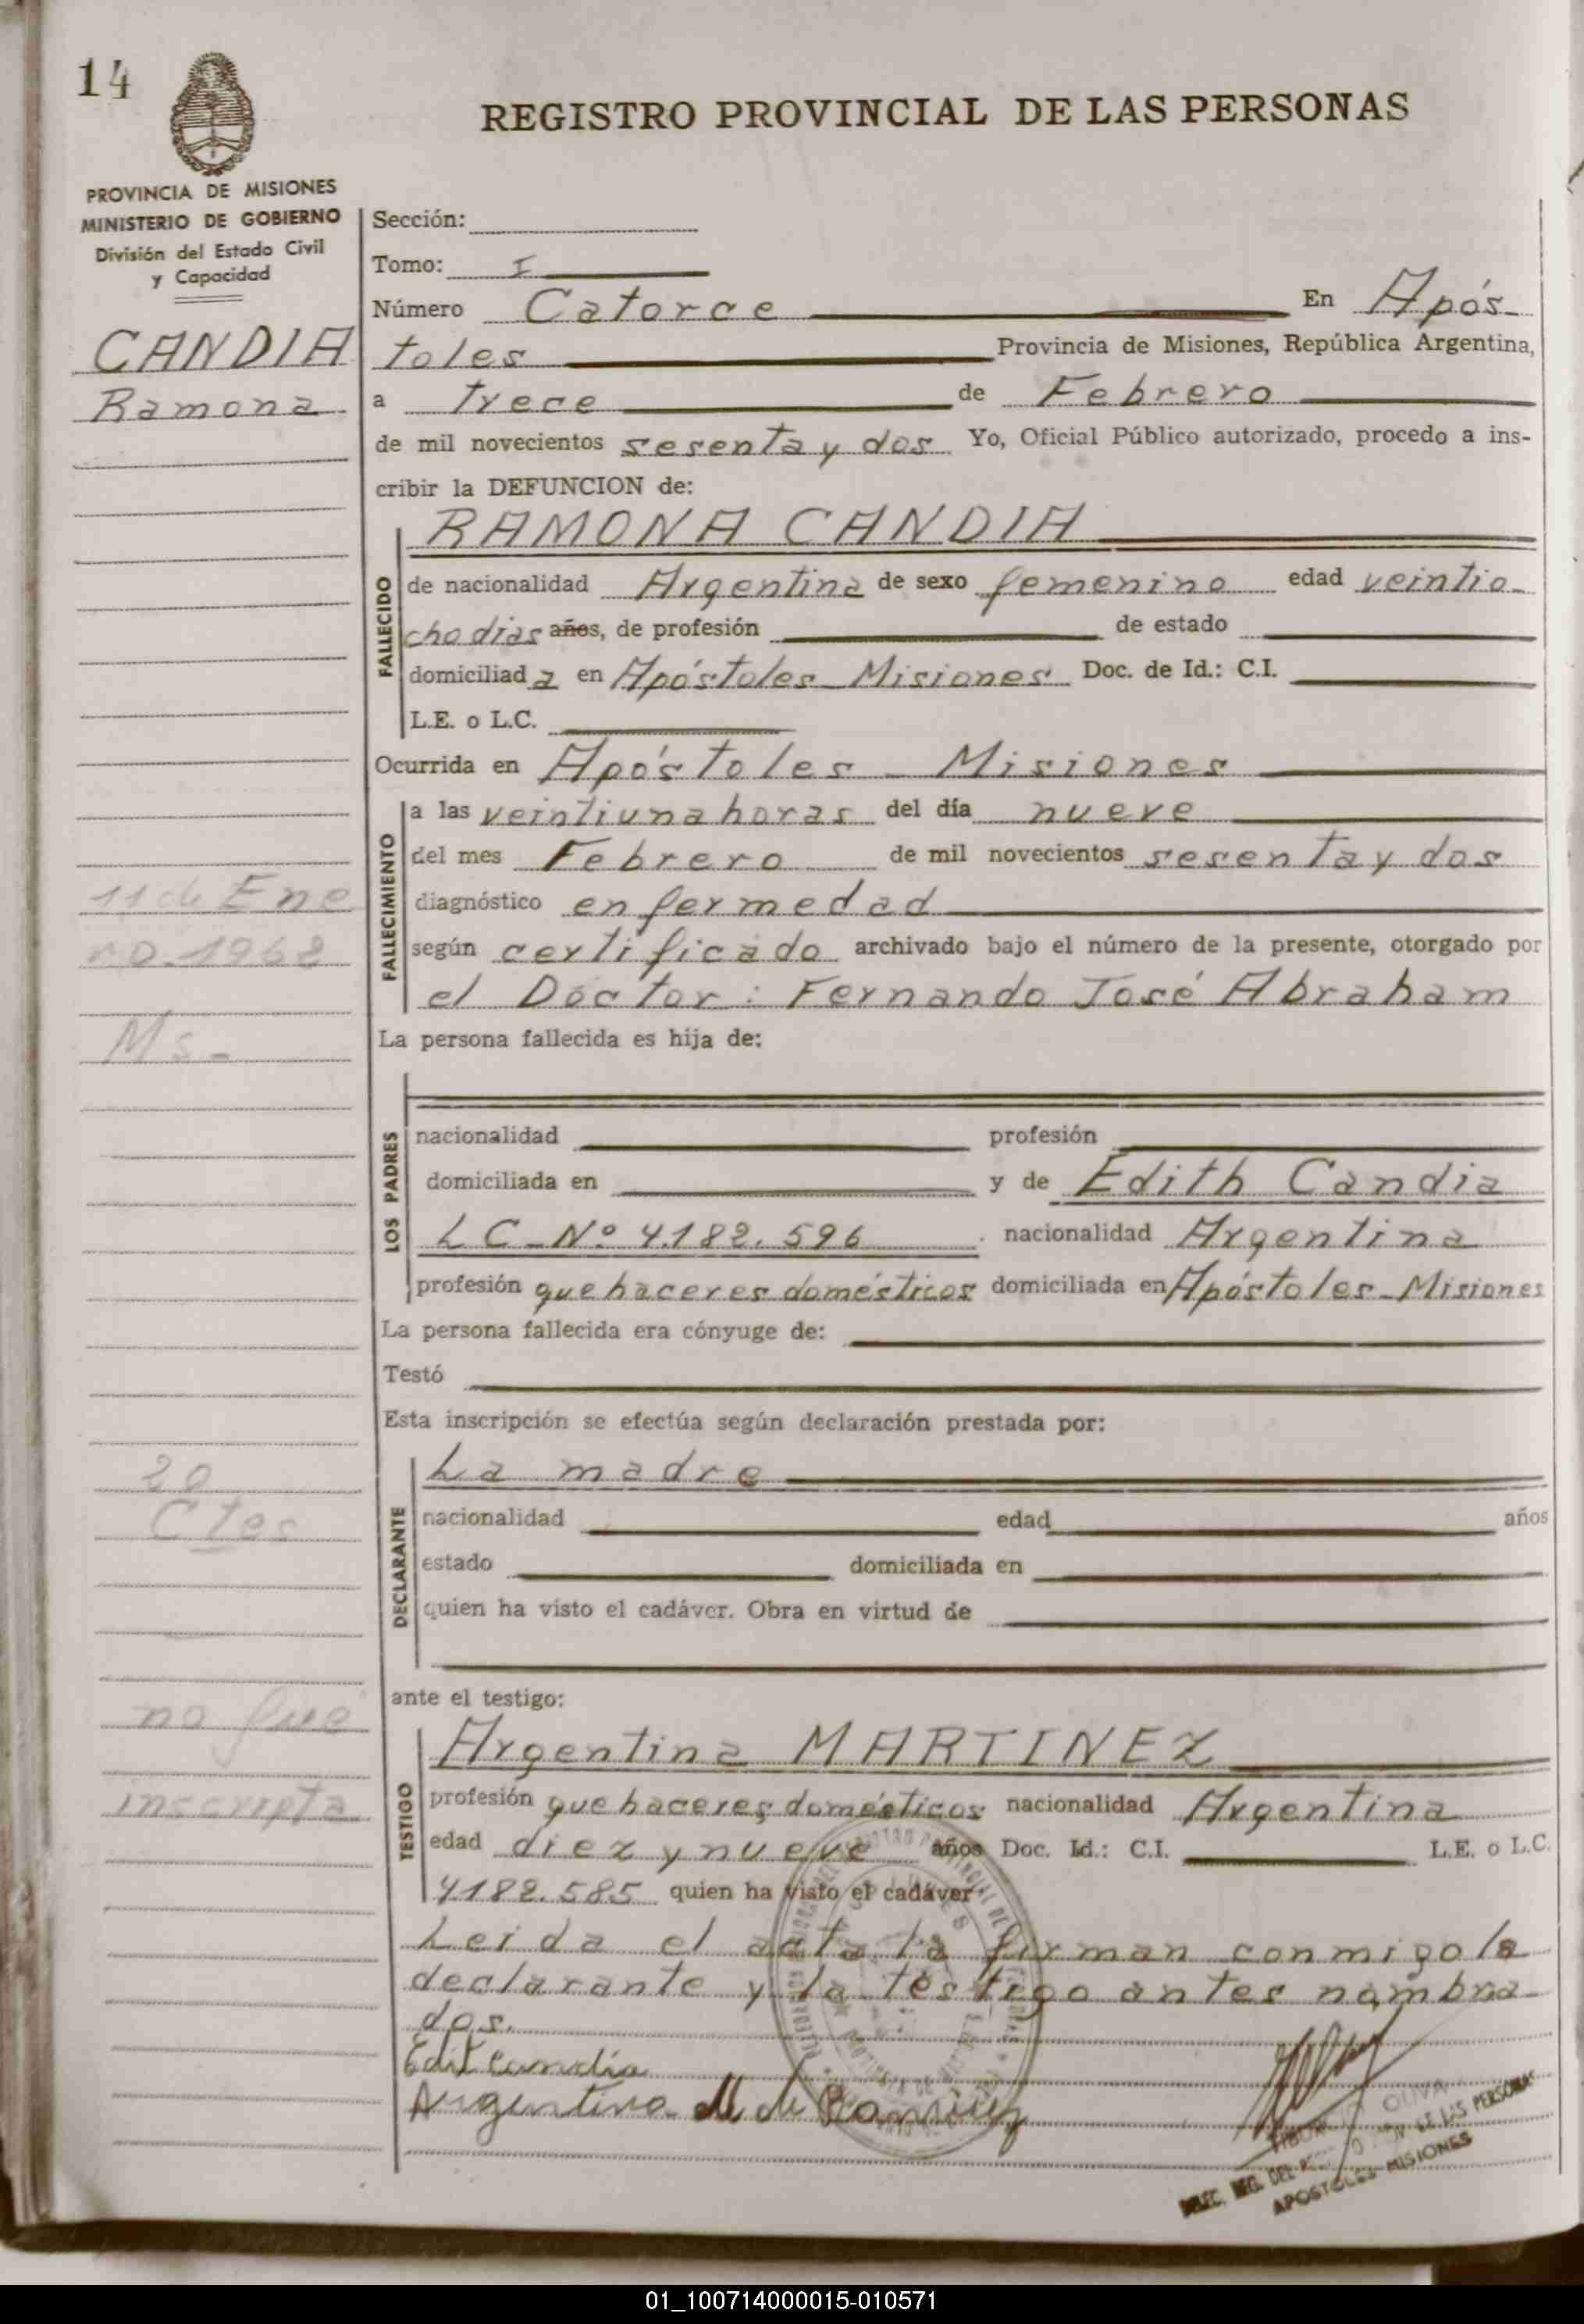 14
REGISTRO PROVINCIAL DE LAS PERSONAS
PROVINCIA DE MISIONES
MINISTERIO DE GOBIERNO
División del Estado Civil
y Capacidad
CANDIA
Ramona
11 de Ene
ro 1962
Ms-
20
Ctes
no fue
inscripta
Sección:
Tomo: I
Número Catorce En Após-
toles Provincia de Misiones, República Argentina,
a trece de Febrero
de mil novecientos sesenta y dos Yo, Oficial Público autorizado, procedo a ins-
cribir la DEFUNCION de:
FALLECIDO
RAMONA CANDIA
de nacionalidad Argentina de sexo femenino edad veintio-
cho dias años, de profesión de estado
domiciliad a en Apóstoles Misiones Doc. de Id.: C.I.
L.E. o L.C.
Ocurrida en Apóstoles - Misiones
FALLECIMIENTO
a las veintiuna horas del día nueve
del mes Febrero de mil novecientos sesenta y dos
diagnóstico enfermedad
según certificado archivado bajo el número de la presente, otorgado por
el Doctor: Fernando José Abraham
La persona fallecida es hija de:
LOS PADRES
nacionalidad profesión
domiciliada en y de Edith Candia
LC-Nº 4.182.596 nacionalidad Argentina
profesión quehaceres domésticos domiciliada en Apóstoles-Misiones
La persona fallecida era cónyuge de:
Testó
Esta inscripción se efectúa según declaración prestada por:
DECLARANTE
La madre
nacionalidad edad años
estado domiciliada en
quien ha visto el cadáver. Obra en virtud de
ante el testigo:
TESTIGO
Argentina MARTINEZ
profesión quehaceres domésticos nacionalidad Argentina
edad diez y nueve años Doc. Id.: C.I. L.E. o L.C.
4182.585 quien ha visto el cadáver
Leida el acta la firman conmigo la
declarante y la testigo antes nombra-
dos.
Edit Candia
Argentina M de Ramirez
OLIVA
DE LAS PERSONAS
APOSTOLES-MISIONES
01_100714000015-010571